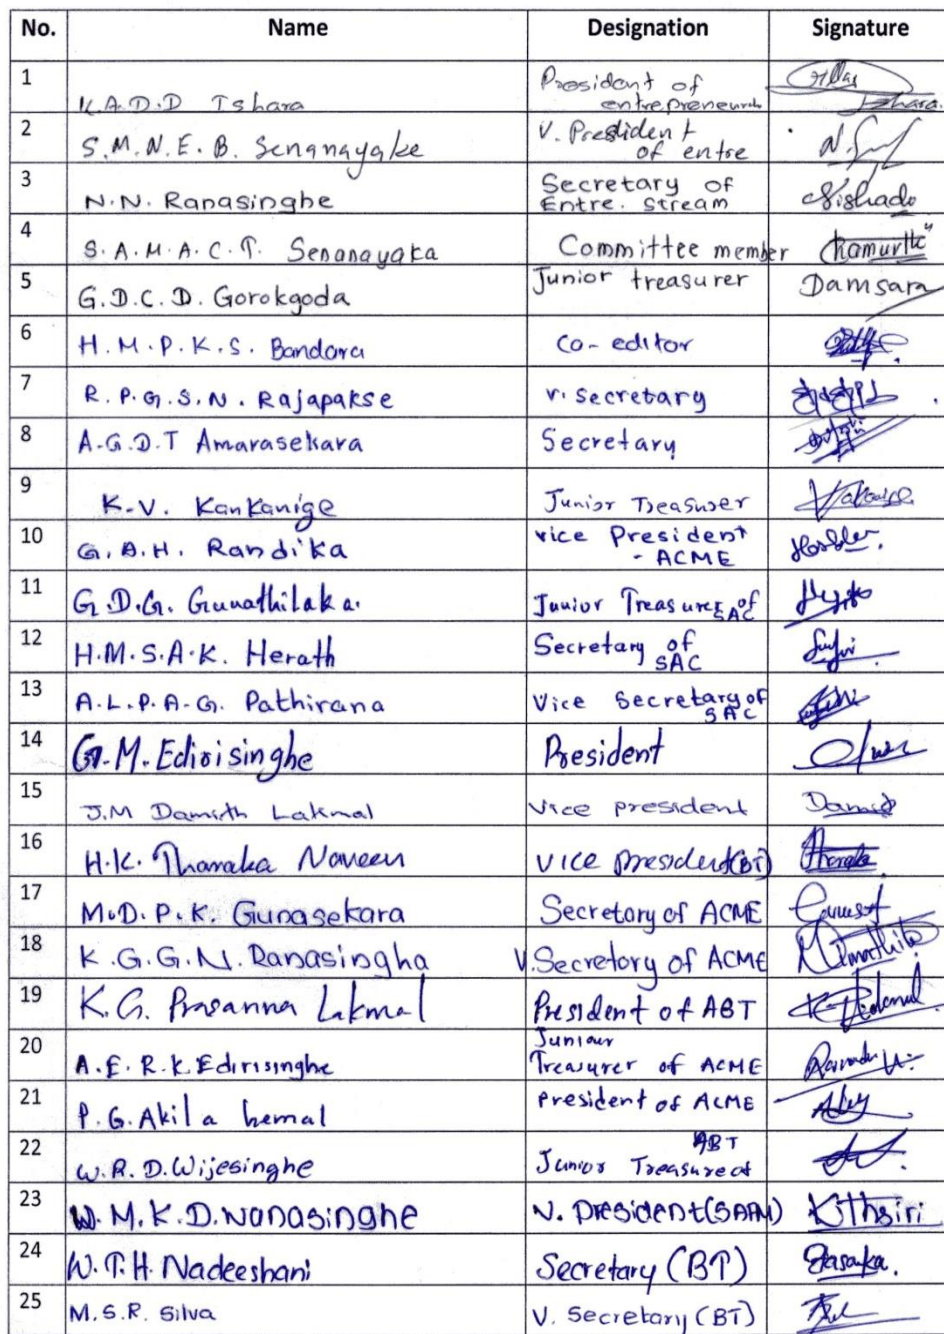 No. Name Designation Signature
1 K.A.D.D Ishara President of entrepreneurs Ishara.
2 S.M.N.E.B. Senanayake V. President of entre
3 N.N. Ranasinghe Secretary of Entre. Stream Nishado
4 S.A.M.A.C.T. Senanayaka Committee member
5 G.D.C.D. Gorokgoda Junior treasurer Damsara
6 H.M.P.K.S. Bandara Co-editor
7 R.P.G.S.N. Rajapakse v. secretary
8 A.G.D.T Amarasekara Secretary
9 K.V. Kankanige Junior Treasurer
10 G.A.H. Randika vice President - ACME
11 G.D.G. Gunathilaka. Junior Treasurer of SAC
12 H.M.S.A.K. Herath Secretary of SAC
13 A.L.P.A.G. Pathirana Vice Secretary of SAC
14 G.M. Edirisinghe President
15 J.M Damith Lakmal Vice president
16 H.K. Tharaka Naveen vice president(BT)
17 M.D.P.K. Gunasekara Secretary of ACME
18 K.G.G.N. Ranasingha V.Secretory of ACME
19 K.G. Prasanna Lakmal President of ABT
20 A.E.R.K Edirisinghe Juniour Treasurer of ACME
21 P.G. Akila hemal president of ACME
22 W.R.D. Wijesinghe Junior Treasure of ABT
23 W.M.K.D. Wanasinghe V. President(SAAM) Kithsiri
24 W.T.H. Nadeeshani Secretary (BT) Hasanka.
25 M.S.R. Silva V. Secretary (BT)